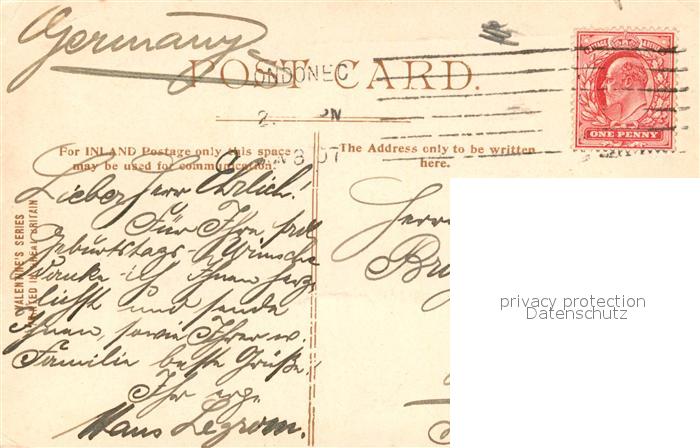 Germany
POST CARD.
ONDON E C
2. PM
8 07
ONE PENNY
For INLAND Postage only this space
may be used for communication.
The Address only to be written
here.
VALENTINE'S SERIES
PRINTED IN GREAT BRITAIN
Lieber Herr Ehrlich!
Für Ihre frdl
Geburtstags-Wünsche
danke ich Ihnen herz-
lichst und sende
Ihnen, sowie Ihrer w.
Familie beste Grüße.
Ihr erg.
Hans
Herrn
privacy protection
Datenschutz